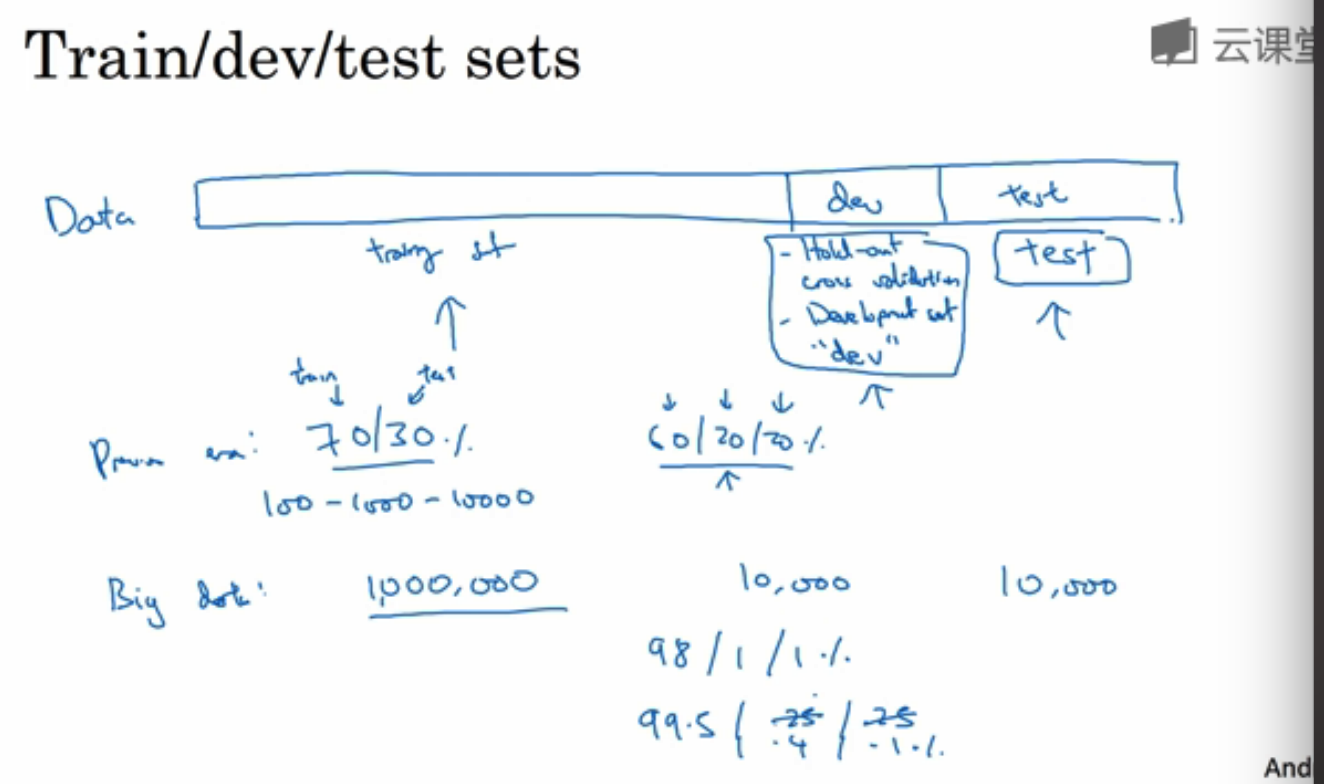 Train/dev/test sets
云课堂
Data
dev
test
training set
- Hold-out
cross validation
- Development set
"dev"
test
train
test
Previous era:
70/30 %
60/20/20 %
100 - 1000 - 10000
Big data:
1,000,000
10,000
10,000
98/1/1 %
99.5 / .25 / .25
.4 .1 %
And